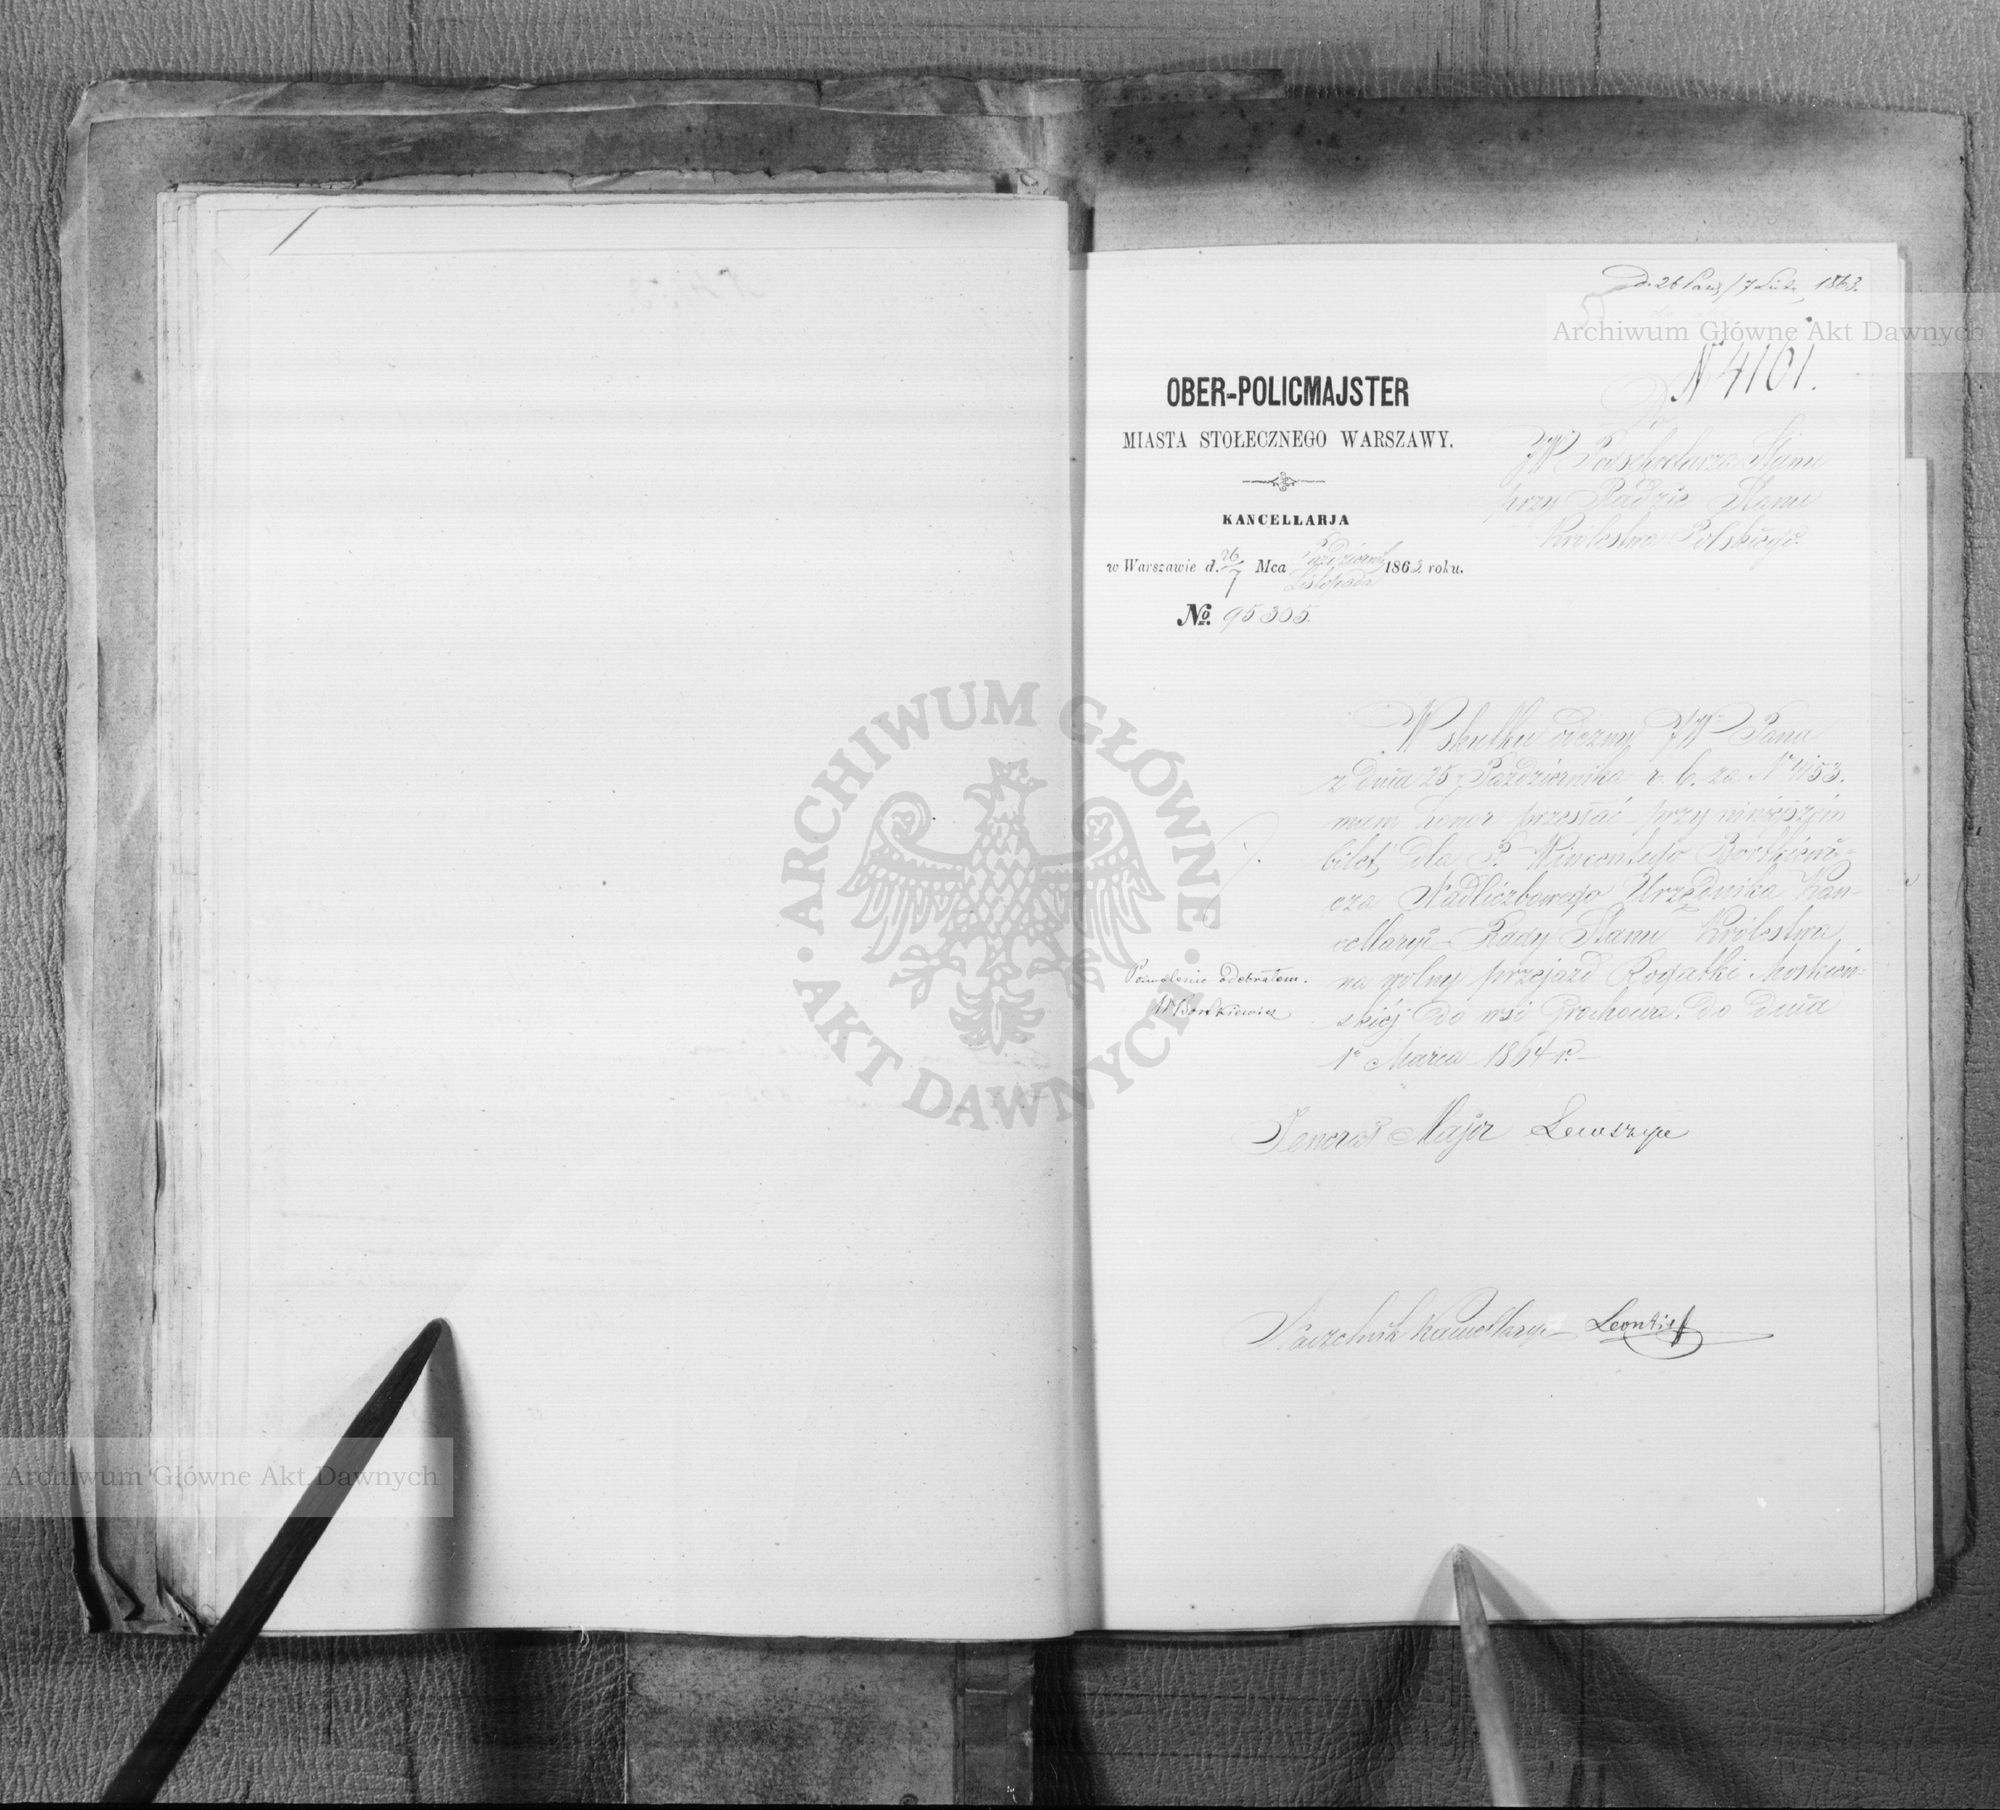 D. 26 Paź/7 List. 1863.
Archiwum Główne Akt Dawnych
N 4161.
OBER-POLICMAJSTER
MIASTA STOŁECZNEGO WARSZAWY.
KANCELLARJA
w Warszawie d. 26/7 Mca Października/Listopada 1863 roku.
No. 95305.
Do
JW Podsekretarza Stanu
przy Radzie Stanu
Królestwa Polskiego.
W skutku odezwy JW Pana
z dnia 25 Października r. b. za N 4153.
mam honor przesłać przy niniejszém
bilet dla P. Wincentego Bortkiewi-
cza Nadliczbowego Urzędnika Kan-
cellaryi Rady Stanu Królestwa
na wolny przejazd Rogatki Moskiew-
skiéj do wsi Grochowa do dnia
1o Marca 1864 r.
Pozwolenie odebrałem.
WBortkiewicz
Jenerał Major Lewszyn
Naczelnik Kancellaryi
ARCHIWUM GŁÓWNE
AKT DAWNYCH
Archiwum Główne Akt Dawnych